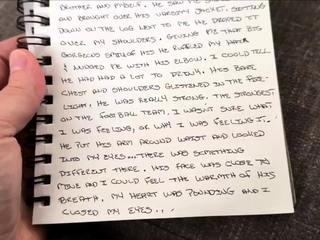 BROTHER AND MYSELF. HE SAW ME
AND BROUGHT OVER HIS VARSITY JACKET. SETTING
DOWN ON THE LOG NEXT TO ME HE DROPPED IT
OVER MY SHOULDERS. GIVING ME THAT BIG
GORGEOUS SMILE OF HIS HE RUFFLED MY HAIR
& NUDGED ME WITH HIS ELBOW. I COULD TELL
HE HAD HAD A LOT TO DRINK. HIS BARE
CHEST AND SHOULDERS GLISTENED IN THE FIRE-
LIGHT. HE WAS REALLY STRONG. THE STRONGEST
ON THE FOOTBALL TEAM. I WASN'T SURE WHAT
I WAS FEELING, OR WHY I WAS FEELING IT..
HE PUT HIS ARM AROUND WAIST AND LOOKED
INTO MY EYES...THERE WAS SOMETHING
DIFFERENT THERE. HIS FACE WAS CLOSE TO
MINE AND I COULD FEEL THE WARMTH OF HIS
BREATH. MY HEART WAS POUNDING AND I
CLOSED MY EYES...